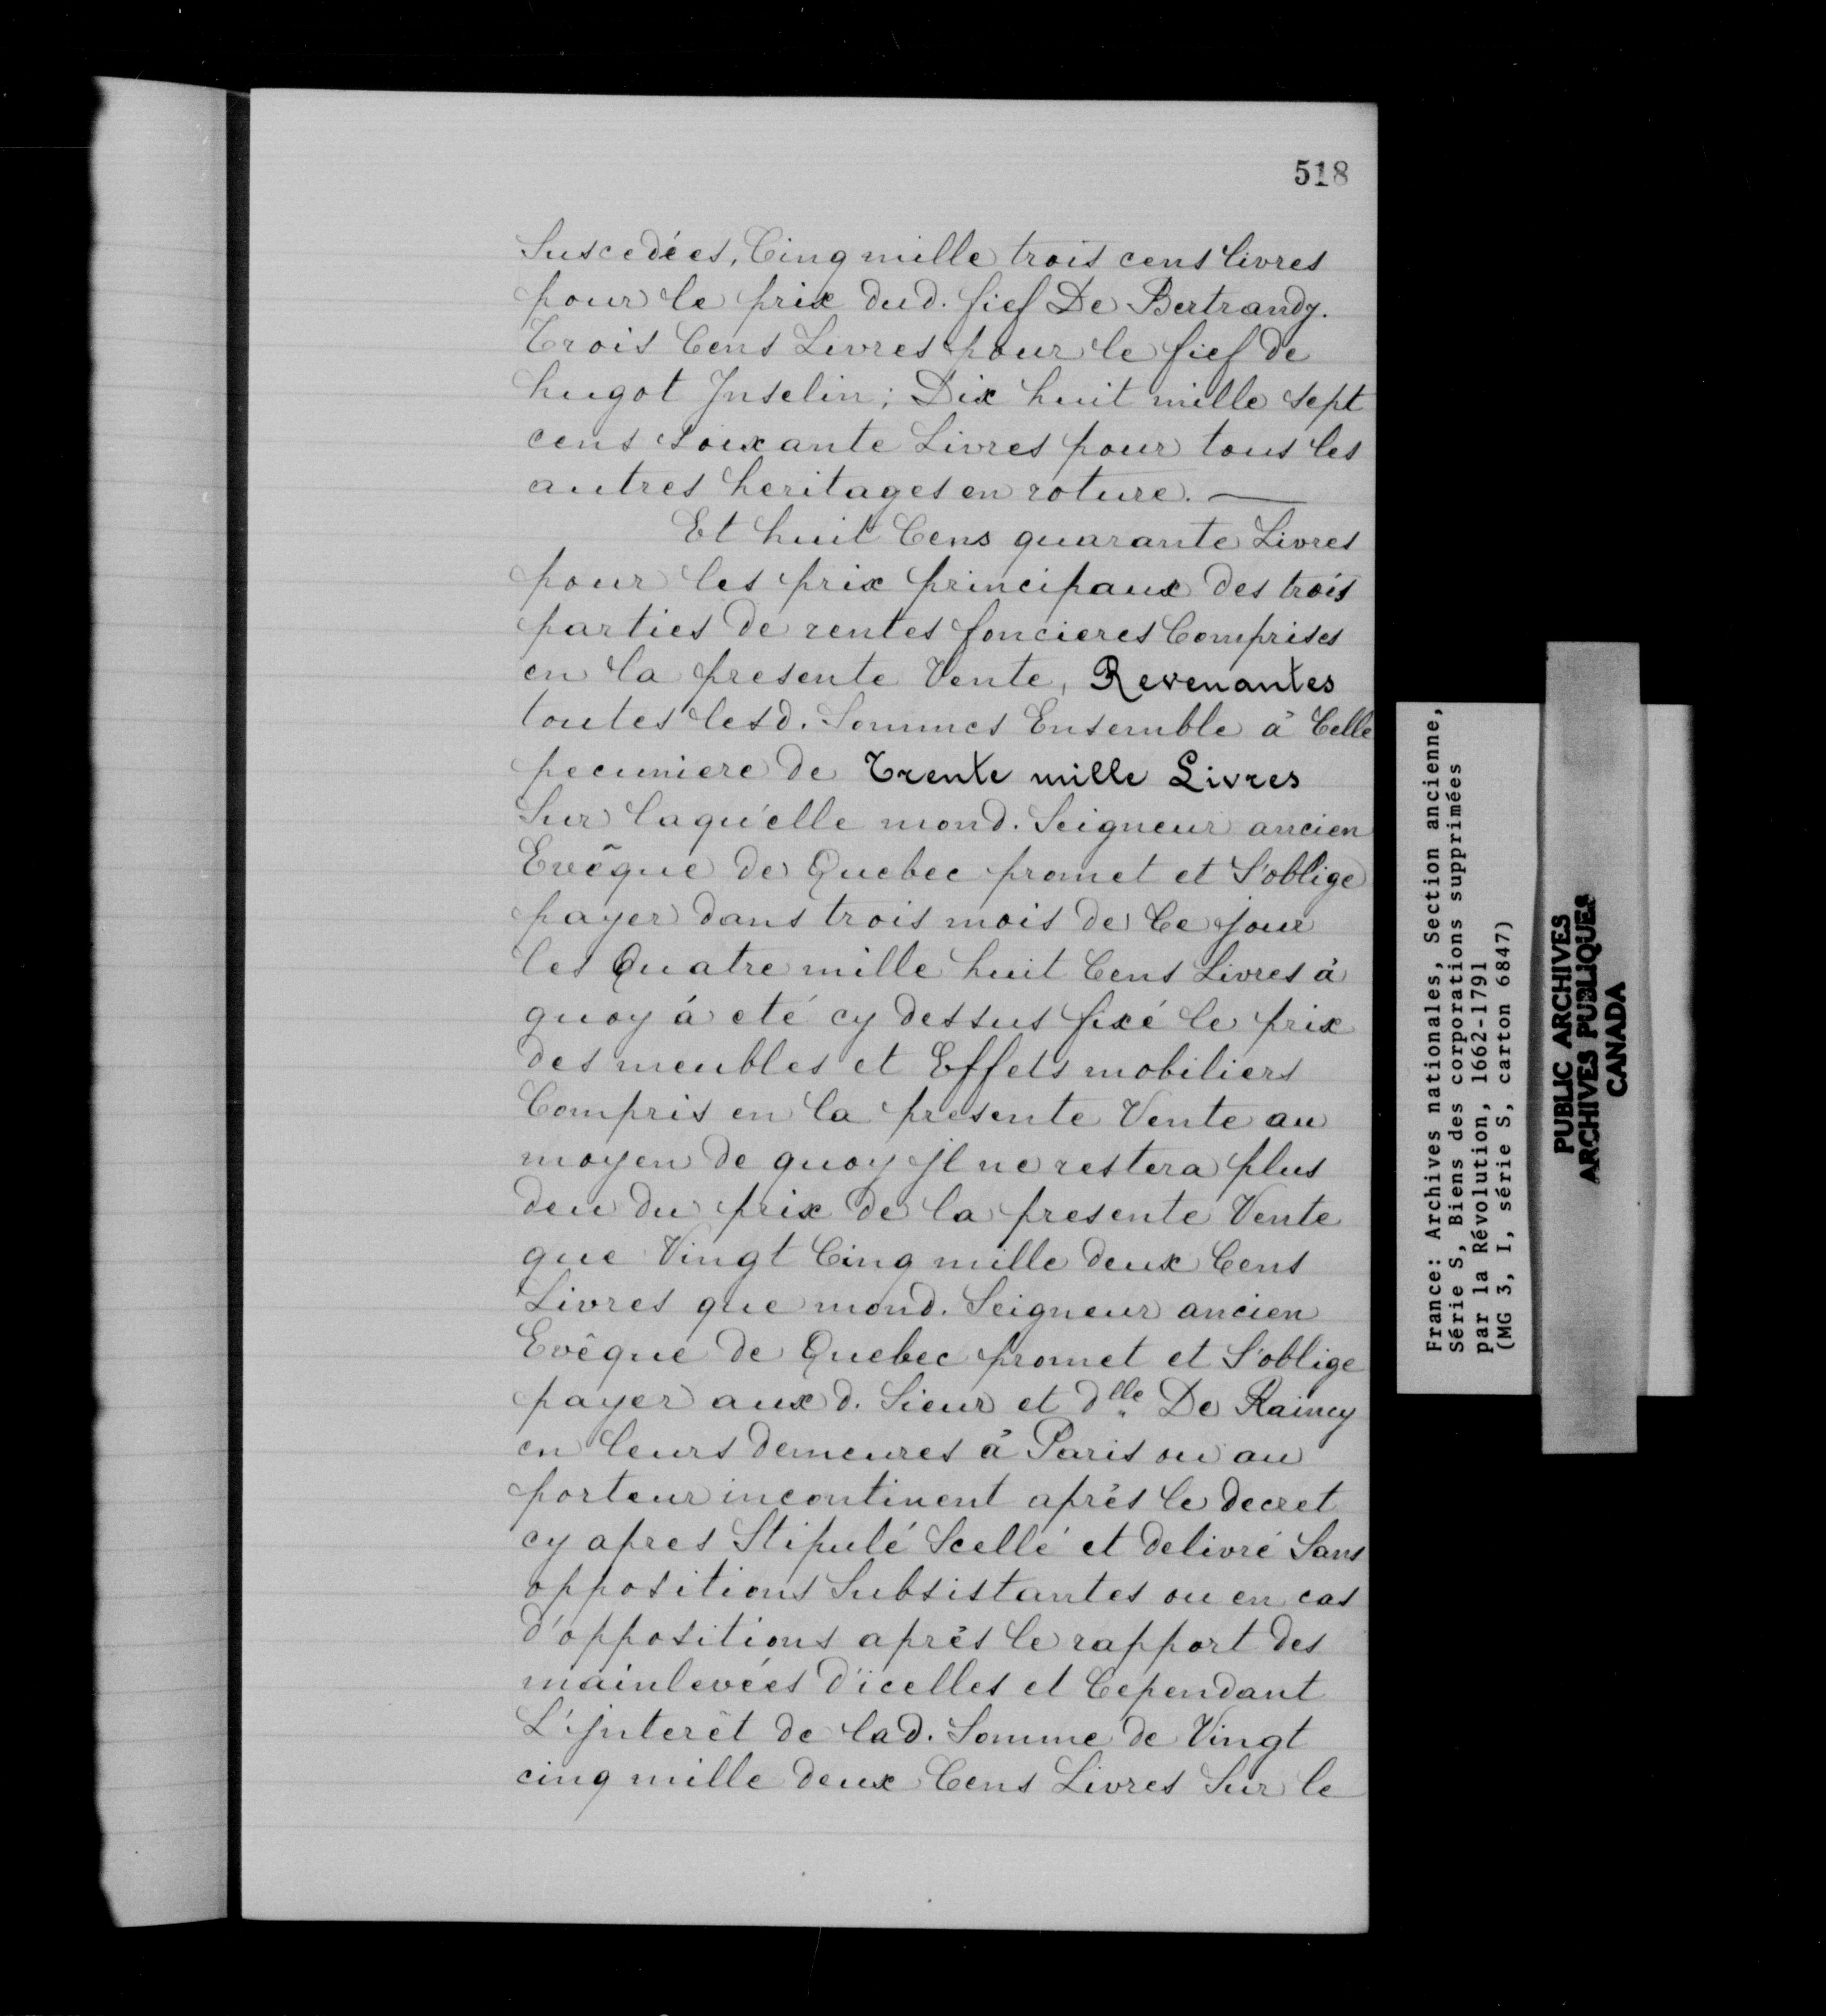 518
Suscedées, Cinq mille trois cens livres
pour le prix dud. fief De Bertrandy.
Trois Cens Livres pour le fief de
hugot Jnselin; Dix huit mille sept
cens soixante Livres pour tous les
autres heritages en roture. —
Et huit Cens quarante Livres
pour les prix principaux des trois
parties de rentes foncieres Comprises
en la presente Vente, Revenantes
toutes lesd. Sommes Ensemble à Celle
pecuniere de Trente mille Livres
Sur laqu'elle mond. Seigneur ancien
Evêque de Quebec promet et S'oblige
payer dans trois mois de Ce jour
les Quatre mille huit Cens Livres à
quoy á eté cy dessus fixé le prix
des meubles et Effets mobiliers
Compris en la presente Vente au
moyen de quoy jl ne restera plus
deu du prix de la presente Vente
que Vingt Cinq mille deux Cens
Livres que mond. Seigneur ancien
Evêque de Quebec promet et S'oblige
payer aux d. Sieur et dlle De Raincy
en leurs demeures à Paris ou au
porteur incontinent après le decret
cy apres Stipulé Scellé et delivré Sans
oppositions Subsistantes ou en cas
d'oppositions après le rapport des
mainlevées d'icelles et Cependant
L'jnterêt de lad. Somme de Vingt
cinq mille deux Cens Livres Sur le
France: Archives nationales, Section ancienne,
Série S, Biens des corporations supprimées
par la Révolution, 1662-1791
(MG 3, I, série S, carton 6847)
PUBLIC ARCHIVES
ARCHIVES PUBLIQUES
CANADA